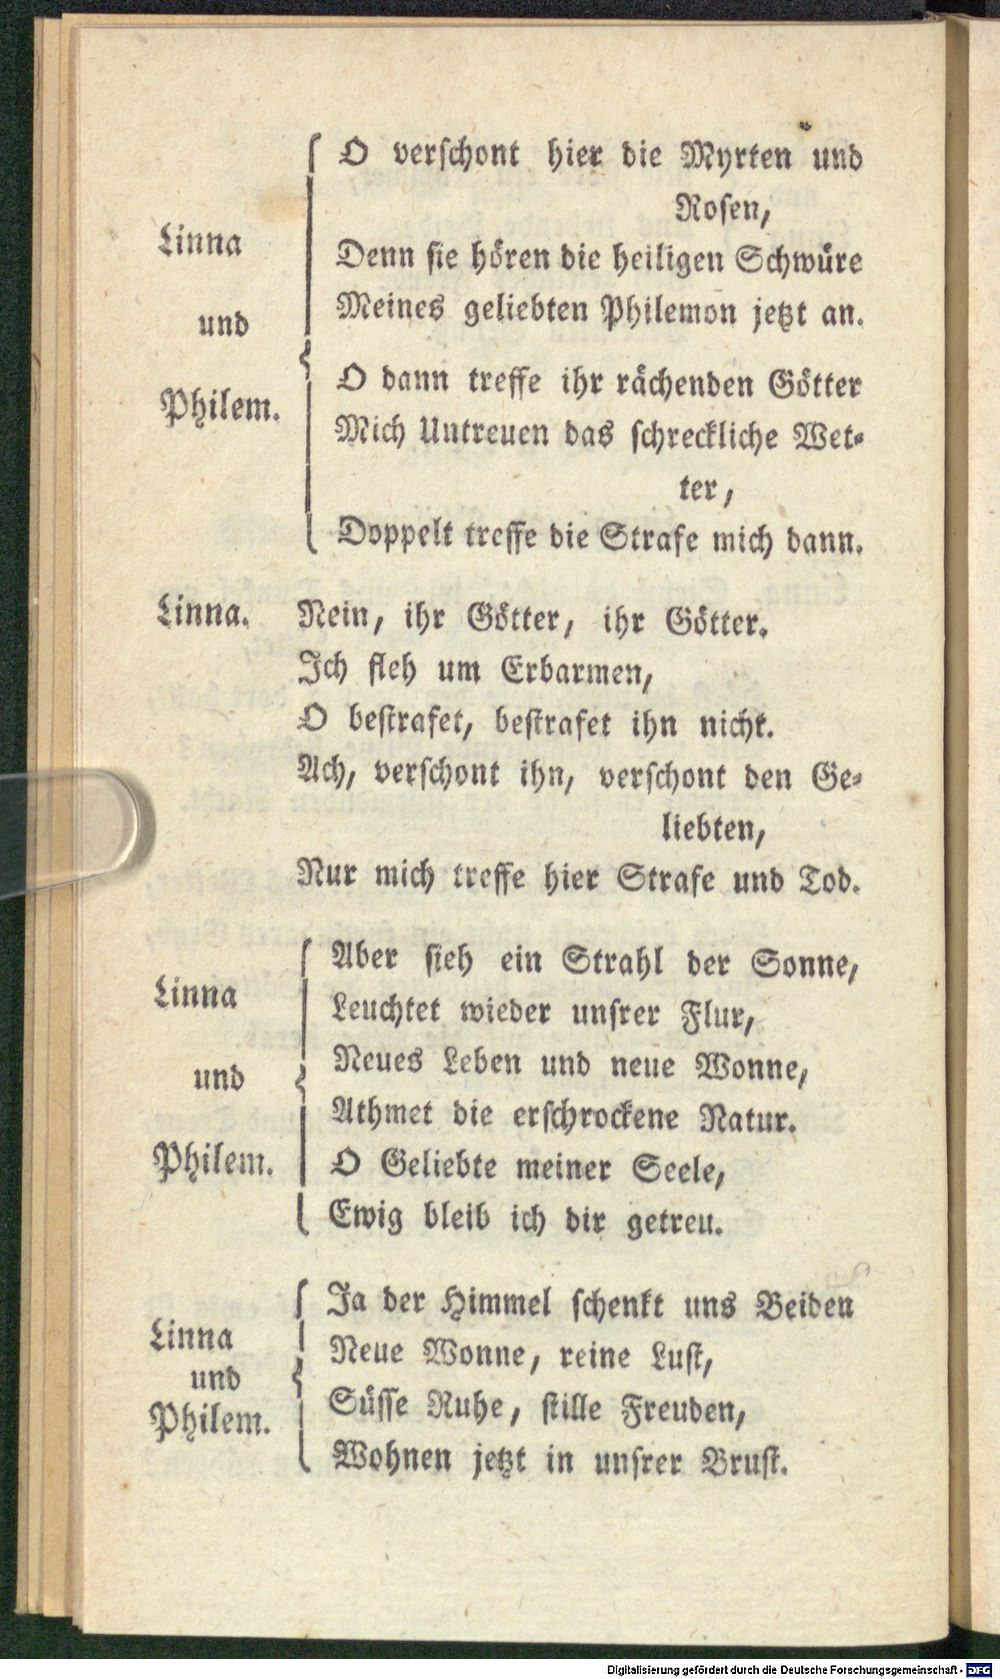 Linna
und
Philem.
O verschont hier die Myrten und
Rosen,
Denn sie hören die heiligen Schwüre
Meines geliebten Philemon jetzt an.
O dann treffe ihr rächenden Götter
Mich Untreuen das schreckliche Wet-
ter,
Doppelt treffe die Strafe mich dann.
Linna. Nein, ihr Götter, ihr Götter.
Ich fleh um Erbarmen,
O bestrafet, bestrafet ihn nicht.
Ach, verschont ihn, verschont den Ge-
liebten,
Nur mich treffe hier Strafe und Tod.
Linna
und
Philem.
Aber sieh ein Strahl der Sonne,
Leuchtet wieder unsrer Flur,
Neues Leben und neue Wonne,
Athmet die erschrockene Natur.
O Geliebte meiner Seele,
Ewig bleib ich dir getreu.
Linna
und
Philem.
Ja der Himmel schenkt uns Beiden
Neue Wonne, reine Lust,
Süsse Ruhe, stille Freuden,
Wohnen jetzt in unsrer Brust.
Digitalisierung gefördert durch die Deutsche Forschungsgemeinschaft - DFG